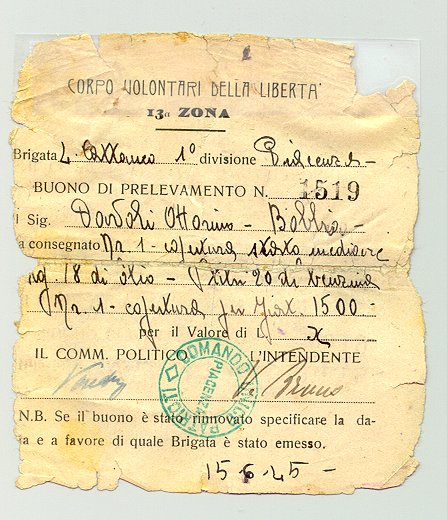 CORPO VOLONTARI DELLA LIBERTA'
13a ZONA
Brigata L. Cattaneo 1° divisione Piacenza -
BUONO DI PRELEVAMENTO N. 1519
l Sig. Davoli Ottorino - Bobbio -
a consegnato Nr 1 - copertura stato mediocre
Kg 18 di olio - litri 20 di benzina
Nr 1 - copertura per 1500 -
per il Valore di x
IL COMM. POLITICO L'INTENDENTE
Bruno
COMANDO PIACENTINI PATRIOTI
N.B. Se il buono è stato rinnovato specificare la da-
ta e a favore di quale Brigata è stato emesso.
15-6-45 -